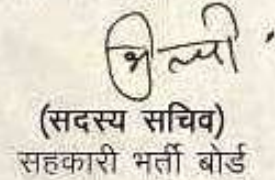 (सदस्य सचिव)
सहकारी भर्ती बोर्ड